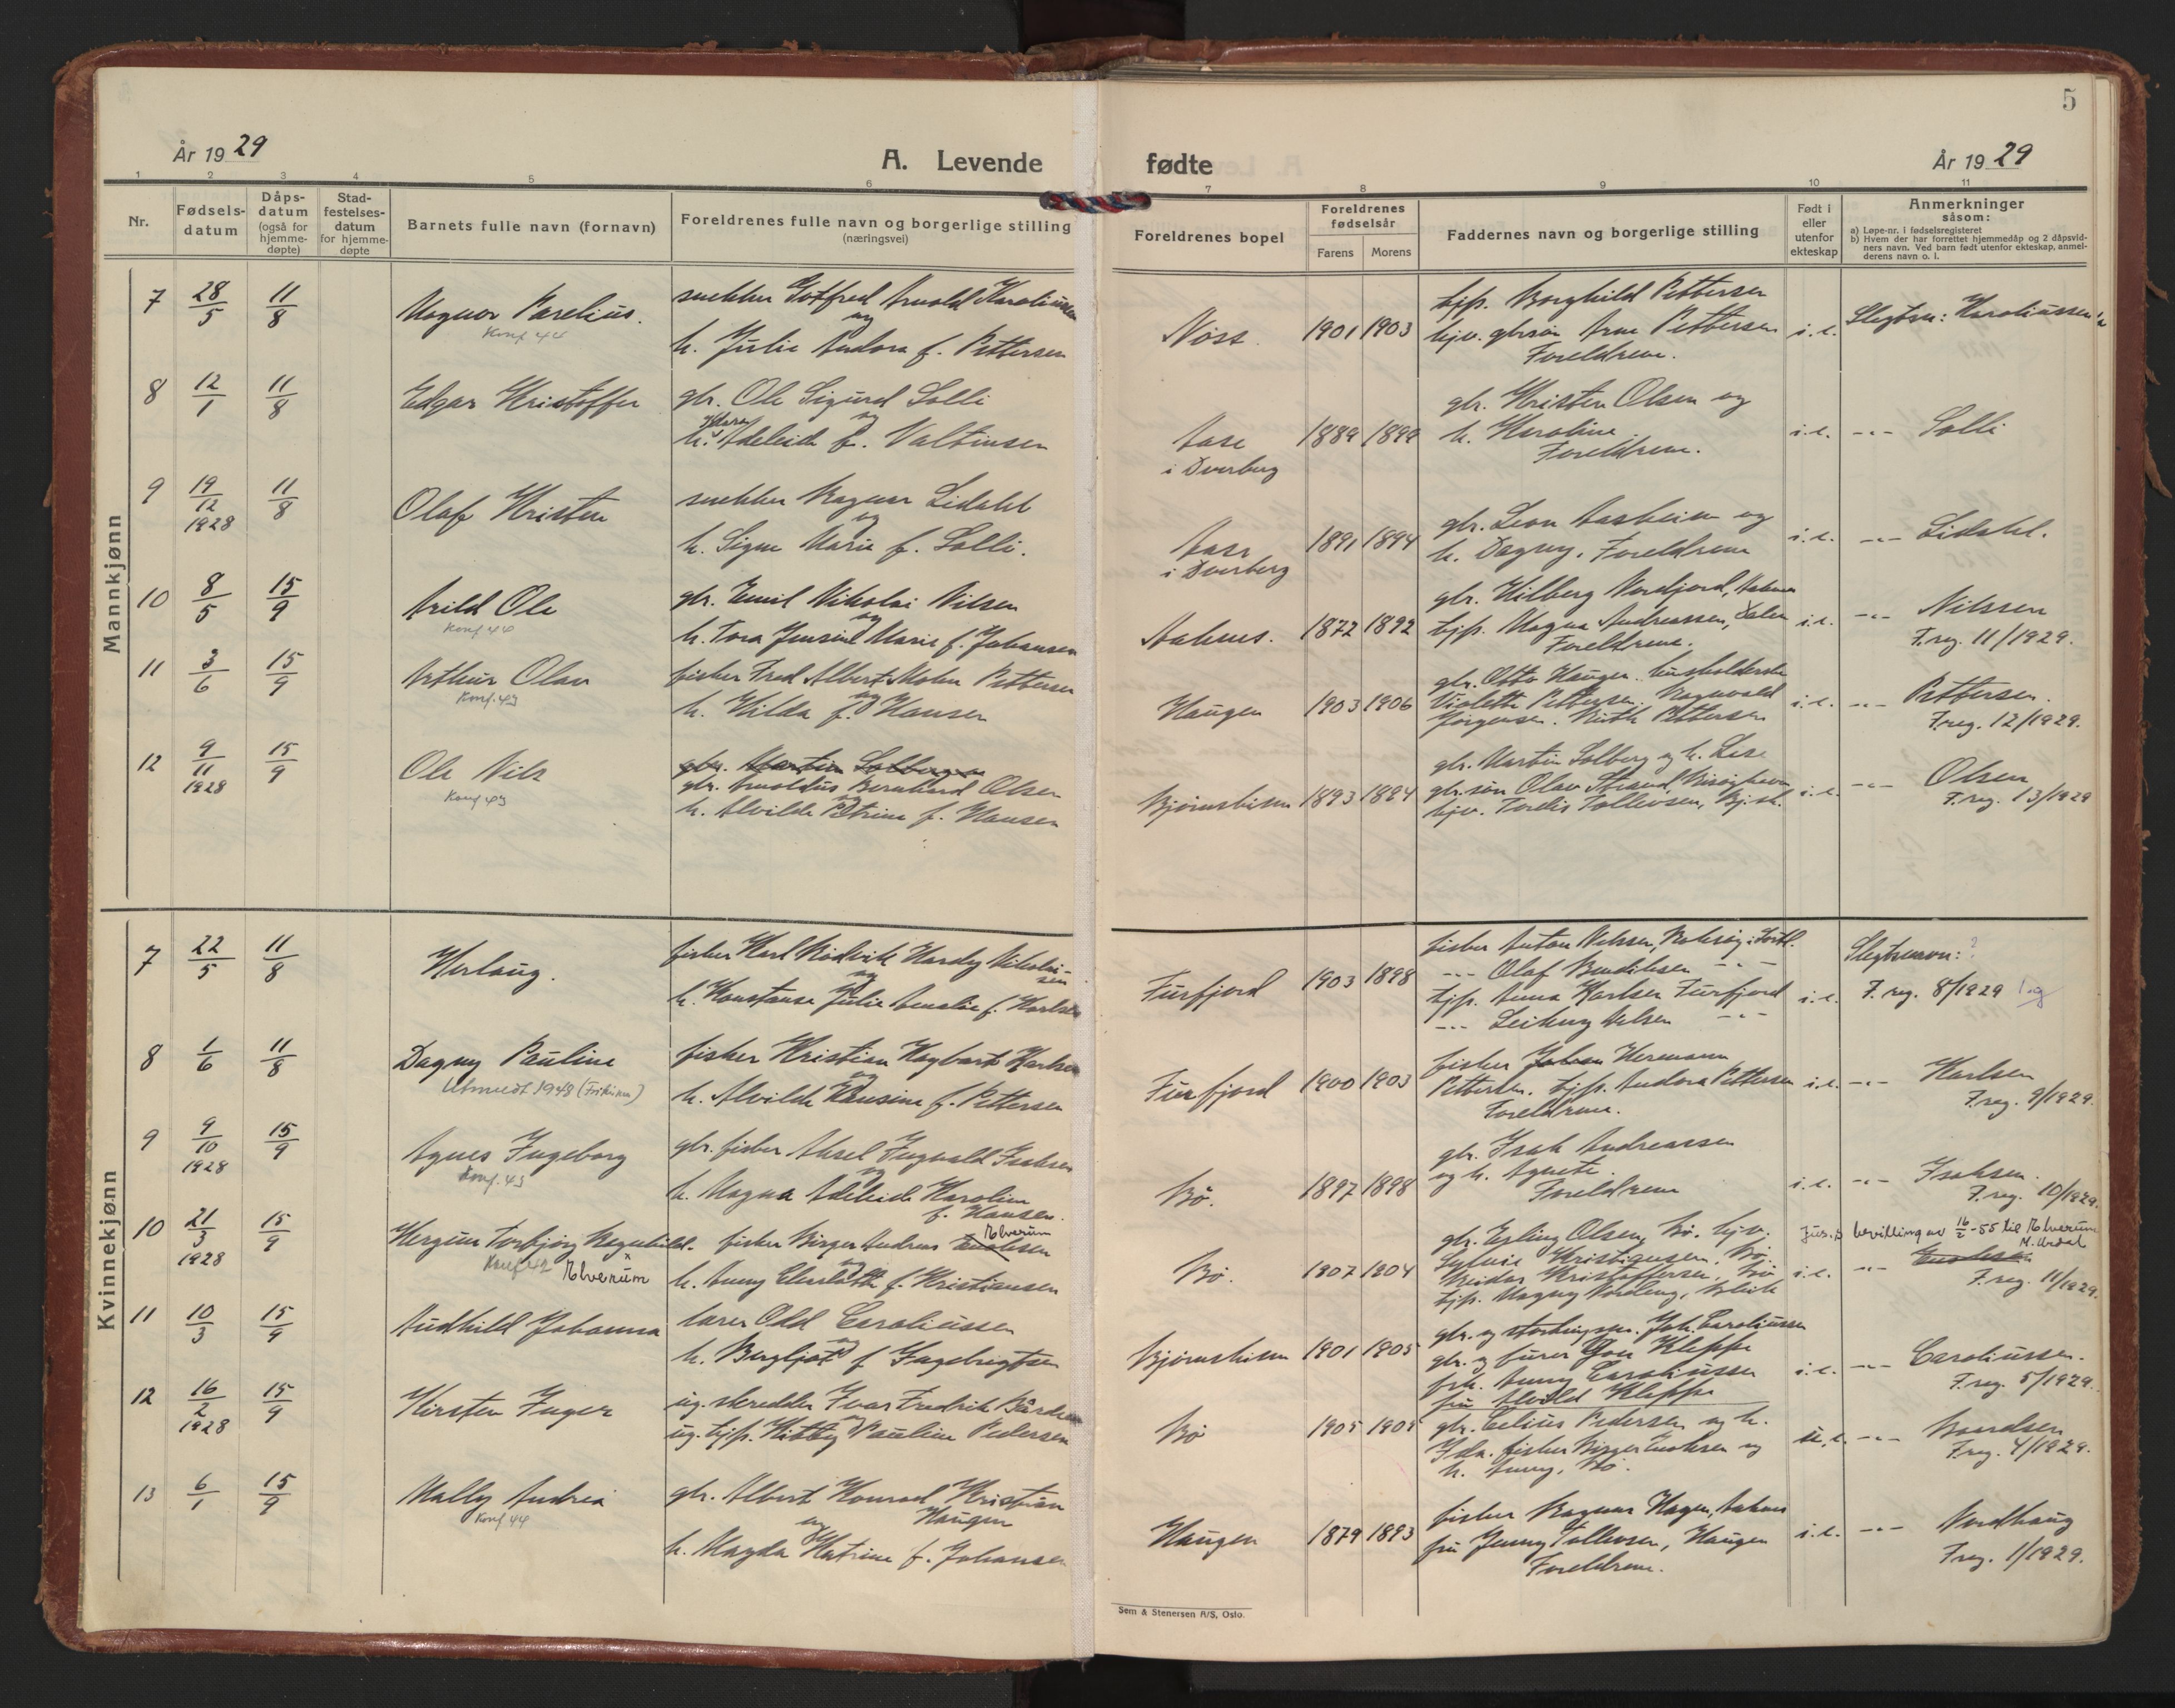 5
År 1929
A. Levende fødte
År 1929
1 2 3 4 5 6 7 8 9 10 11
Nr.
Fødsels-
datum
Dåps-
datum
(også for
hjemme-
døpte)
Stad-
festelses-
datum
for hjemme-
døpte
Barnets fulle navn (fornavn)
Foreldrenes fulle navn og borgerlige stilling
(næringsvei)
Foreldrenes bopel
Foreldrenes
fødselsår
Farens Morens
Faddernes navn og borgerlige stilling
Født i
eller
utenfor
ekteskap
Anmerkninger
såsom:
a) Løpe-nr. i fødselsregisteret
b) Hvem der har forrettet hjemmedåp og 2 dåpsvid-
ners navn. Ved barn født utenfor ekteskap, anmel-
derens navn o. l.
Mannkjønn
7 28/5 11/8 Magnor Parelius.
Konf 44
snekker Gotfred Arnold Karoliussen
og
h. Julie Andora f. Pettersen
Nöss 1901 1903
tjp. Borghild Pettersen
hjv. gbrsøn Arne Pettersen
Foreldrene.
i.e. Slegtsn: Karoliussen
8 12/1 11/8 Edgar Kristoffer
gbr. Ole Sigurd Solli
og
h. Adeleide f. Valtinsen
Aase
i Dverberg
1889 1899
gbr. Kristen Olsen og
h. Karoline
Foreldrene.
i.e. -"- Solli
9 19/12 1928 11/8 Olaf Kristen
snekker Ragnar Lidahl
og
h. Signe Marie f. Solli.
Aase
i Dverberg
1891 1894
gbr. Leon Aasheim og
h. Dagny. Foreldrene
i.e. -"- Lidahl.
10 8/5 15/9 Arild Ole
Konf 44
gbr. Emil Nikolai Nilsen
og
h. Tora Jensine Marie f. Johansen
Aaknes. 1872 1892
gbr. Hilberg Nordfjord,
tjp. Magna Andreassen,
Foreldrene.
i.e. -"- Nilssen
F.reg. 11/1929.
11 3/6 15/9 Arthur Olav
Konf. 43
fisker Fred Albert Pettersen
og
h. Hilda f. Hansen
Haugen 1903 1906
gbr. Otto Haugen. husholderske
Violette Pettersen. Ragnvald
Jörgensen. Ruth Pettersen
i.e. -"- Pettersen.
F.reg. 12/1929.
12 9/11 1928 15/9 Ole Nils
Konf 43
gbr. Martin Solberg
gbr. Arnoldus Bernhard Olsen
og
h. Alvilde Petrine f. Hansen
Bjørnskinn 1893 1894
gbr. Martin Solberg og h. Lise
gbr.søn Olav Strand,
hjv. Tordis Tollevsen, Bj.sk.
i.e. -"- Olsen
F.reg. 13/1929
Kvinnekjønn
7 22/5 11/8 Herlaug.
fisker Karl Rödvik Hardy Nikolai-
sen
og
h. Konstanse Julie Amalie f. Karlsen
Furfjord 1903 1898
fisker Anton Nilssen,
-"- Olaf Bendiksen -"-
tjp. Anna Karlsen Furfjord
-"- Nilsen -"-
i.e. Slegtsnavn: ?
F. reg. 8/1929
8 1/6 11/8 Dagny Pauline
Utmeldt 1948 (Frikirken)
fisker Kristian Hagbart Karlsen
og
h. Alvilde Hansine f. Pettersen
Furfjord 1900 1903
fisker Johan Hermann
Pettersen. tjp. Andora Pettersen
Foreldrene.
i.e. -"- Karlsen
F.reg. 9/1929.
9 9/10 1928 15/9 Agnes Ingeborg
Konf. 43
gbr. fisker Aksel Ingvald Isaksen
og
h. Magna Adeleide Karoline
f. Hansen.
Bö. 1897 1898
gbr. Isak Andreassen
og h. Agnete.
Foreldrene
i.e. -"- Isaksen.
F.reg. 10/1929.
10 21/3 1928 15/9 Hergun Torbjørg Ragnhild.
Konf 42 Elverum
fisker Birger Andreas Enoksen
Elverum
og
h. Anny Elisabeth f. Kristiansen
Bö. 1907 1904
gbr. Erling Olsen, Bö. hjv.
Sylvie Kristiansen, Bö.
Reidar Kristoffersen, Bö
tjp. Magny Nordeng,
i.e. Jus. d bevilling av 16/2-55 til Elverum
-"- Enoksen
F.reg. 11/1929.
11 10/3 15/9 Audhild Johanna
lærer Odd Caroliussen
og
h. Bergljot f Ingebrigtsen
Bjørnskinn 1901 1905
gbr. og stortingsm. Joh. Caroliussen
gbr. og furer Kleppe
frk. Anny Caroliussen
fru Alvild Kleppe
i.e. -"- Caroliussen.
F.reg. 5/1929.
12 16/2 1928 15/9 Kirsten Inger
ug. skredder Ivar Fredrik Bårdsen
og
ug. tjp. Kitty Pauline Pedersen
Bö 1905 1905
gbr. Celius Pedersen og h.
Ida. fisker Birger Enoksen og
h. Anny, Bö.
u.e. -"- Baardsen
F.reg. 4/1929.
13 6/1 15/9 Mally Andrea
Konf 44
gbr. Albert Konrad Kristian
Haugen
og
h. Magda Katrine f. Johansen
Haugen 1879 1893
fisker Ragnar Hagen, Aaknes
fru Jenny Tollevsen, Haugen
Foreldrene.
i.e. -"- Nordhaug
F.reg. 1/1929.
Sem & Stenersen A/S, Oslo.